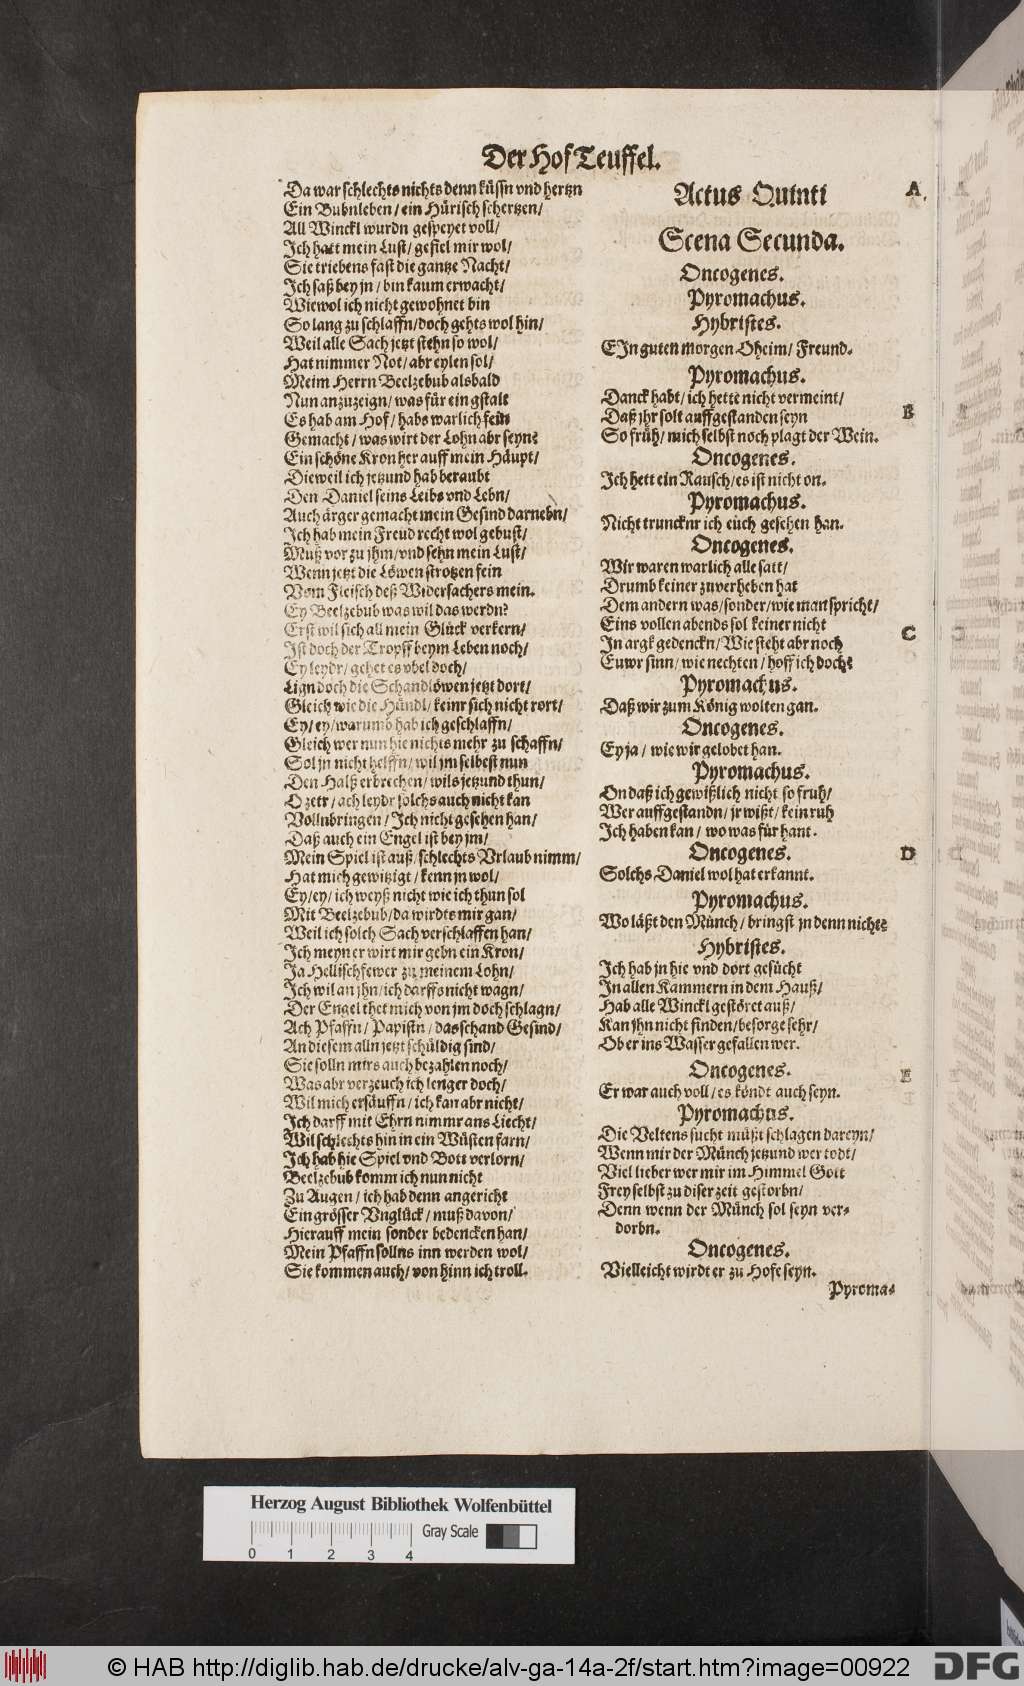 Der Hof Teuffel.
Da war schlechts nichts denn küssn vnd hertzn
Ein Bubnleben / ein Hürisch schertzen /
All Winckl wurdn gespeyet voll /
Ich hatt mein Lust / gefiel mir wol /
Sie triebens fast die gantze Nacht /
Ich saß bey jn / bin kaum erwacht /
Wiewol ich nicht gewohnet bin
So lang zu schlaffn / doch gehts wol hin /
Weil alle Sach jetzt stehn so wol /
Hat nimmer Not / abr eylen sol /
Meim Herrn Beelzebub alsbald
Nun anzuzeign / was für ein gstalt
Es hab am Hof / habs warlich fein
Gemacht / was wirt der Lohn abr seyn?
Ein schöne Kron her auff mein Häupt /
Dieweil ich jetzund hab beraubt
Den Daniel seins Leibs vnd Lebn /
Auch ärger gemacht mein Gesind darnebn /
Ich hab mein Freud recht wol gebust /
Muß vor zu jhm / vnd sehn mein Lust /
Wenn jetzt die Löwen strotzen fein
Vom Fleisch deß Widersachers mein.
Ey Beelzebub was wil das werdn?
Erst wil sich all mein Glück verkern /
Ist doch der Tropff beym Leben noch /
Ey leydr / gehet es vbel doch /
Lign doch die Schandlöwen jetzt dort /
Gleich wie die Hündl / keinr sich nicht rort /
Ey / ey / warumb hab ich geschlaffn /
Gleich wer nun hie nichts mehr zu schaffn /
Sol jn nicht helffn / wil jm selbest nun
Den Halß erbrechen / wils jetzund thun /
O zetr / ach leydr solchs auch nicht kan
Vollnbringen / Ich nicht gesehen han /
Daß auch ein Engel ist bey jm /
Mein Spiel ist auß / schlechts Vrlaub nimm /
Hat mich gewitzigt / kenn jn wol /
Ey / ey / ich weyß nicht wie ich thun sol
Mit Beelzebub / da wirdts mir gan /
Weil ich solch Sach verschlaffen han /
Ich meyn er wirt mir gebn ein Kron /
Ja Hellischfewer zu meinem Lohn /
Ich wil an jhn / ich darffs nicht wagn /
Der Engel thet mich von jm doch schlagn /
Ach Pfaffn / Papistn / das schand Gesind /
An diesem alln jetzt schüldig sind /
Sie solln mirs auch bezahlen noch /
Was abr verzeuch ich lenger doch /
Wil mich ersäuffn / ich kan abr nicht /
Ich darff mit Ehrn nimmr ans Liecht /
Wil schlechts hin in ein Wüsten farn /
Ich hab hie Spiel vnd Bott verlorn /
Beelzebub komm ich nun nicht
Zu Augen / ich hab denn angericht
Ein grösser Vnglück / muß davon /
Hierauff mein sonder bedencken han /
Mein Pfaffn sollns inn werden wol /
Sie kommen auch / von hinn ich troll.
Actus Quinti
Scena Secunda.
Oncogenes.
Pyromachus.
Hybristes.
EIn guten morgen Oheim / Freund.
Pyromachus.
Danck habt / ich hette nicht vermeint /
Daß jhr solt auffgestanden seyn
So früh / mich selbst noch plagt der Wein.
Oncogenes.
Ich hett ein Rausch / es ist nicht on.
Pyromachus.
Nicht truncknr ich euch gesehen han.
Oncogenes.
Wir waren warlich alle satt /
Drumb keiner zuverheben hat
Dem andern was / sonder / wie man spricht /
Eins vollen abends sol keiner nicht
In argk gedenckn / Wie steht abr noch
Euwr sinn / wie nechten / hoff ich doch?
Pyromachus.
Daß wir zum König wolten gan.
Oncogenes.
Ey ja / wie wir gelobet han.
Pyromachus.
On daß ich gewißlich nicht so fruh /
Wer auffgestandn / jr wißt / kein ruh
Ich haben kan / wo was für hant.
Oncogenes.
Solchs Daniel wol hat erkannt.
Pyromachus.
Wo läßt den Münch / bringst jn denn nicht?
Hybristes.
Ich hab jn hie vnd dort gesücht
In allen Kammern in dem Hauß /
Hab alle Winckl gestöret auß /
Kan jhn nicht finden / besorge sehr /
Ob er ins Wasser gefallen wer.
Oncogenes.
Er war auch voll / es köndt auch seyn.
Pyromachus.
Die Veltens sucht müßt schlagen dareyn /
Wenn mir der Münch jetzund wer todt /
Viel lieber wer mir im Himmel Gott
Frey selbst zu diser zeit gestorbn /
Denn wenn der Münch sol seyn ver-
dorbn.
Oncogenes.
Vielleicht wirdt er zu Hofe seyn.
Pyroma-
A
B
C
D
E
Herzog August Bibliothek Wolfenbüttel
Gray Scale
0 1 2 3 4
© HAB http://diglib.hab.de/drucke/alv-ga-14a-2f/start.htm?image=00922
DFG